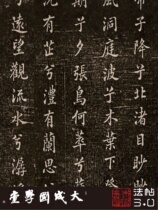 帝子降子北渚目眇眇
風洞庭波子木葉下
期子夕張鳥何萃兮
沅有芷兮澧有蘭思
遠望觀流水兮潺
大成國學堂
法帖
3.0